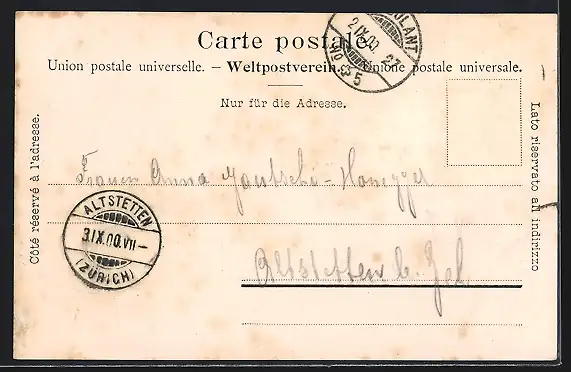 Carte postale.
Union postale universelle. – Weltpostverein. – Unione postale universale.
Nur für die Adresse.
Côté réservé à l'adresse.
Lato riservato all indirizzo
AMBULANT
2 IX 00 27
No 5
Frauen Anna Gautschi-Honegger
ALTSTETTEN
3.IX.00.VII–
(ZÜRICH)
Altstetten b. Zch